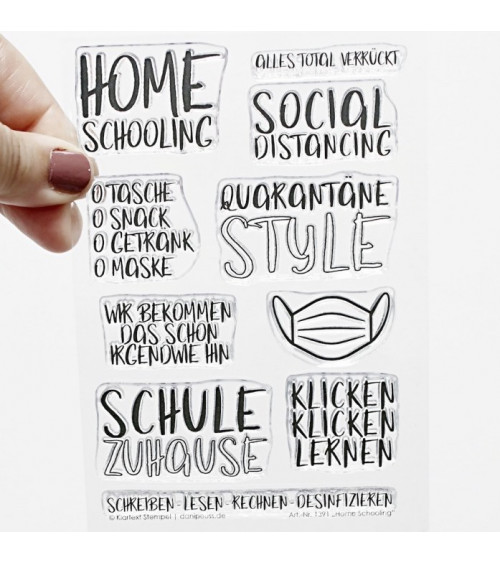 HOME
SCHOOLING
ALLES TOTAL VERRÜCKT
SOCIAL
DISTANCING
O TASCHE
O SNACK
O GETRÄNK
O MASKE
QUARANTÄNE
STYLE
WIR BEKOMMEN
DAS SCHON
IRGENDWIE HIN
SCHULE
ZUHAUSE
KLICKEN
KLICKEN
LERNEN
SCHREIBEN - LESEN - RECHNEN - DESINFIZIEREN
© Karten-Kunst Stempel | danipeuss.de
Art.-Nr. 1391 „Home Schooling"